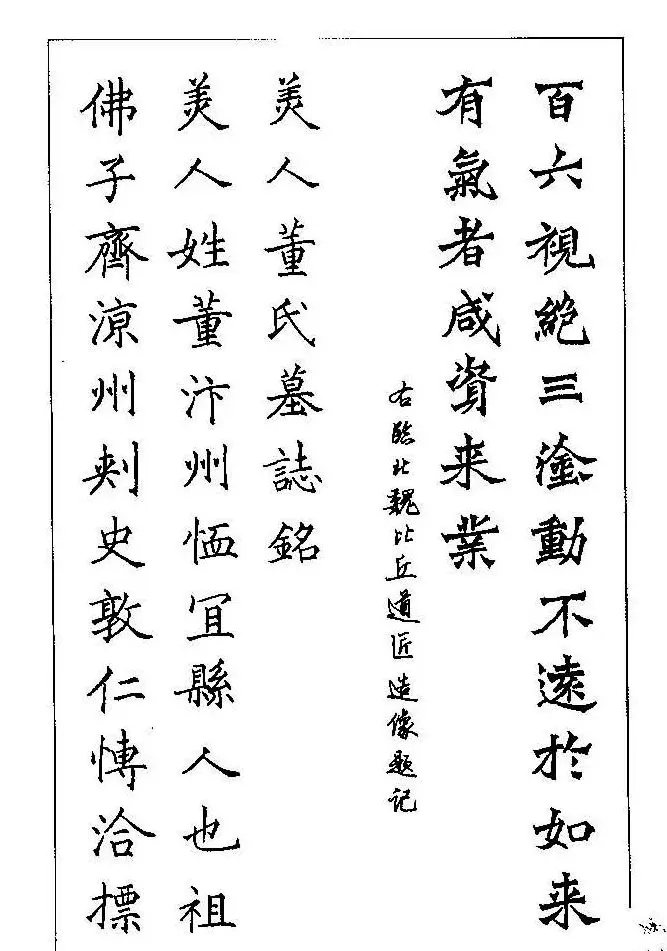 百六視絕三塗動不遠於如来
有氣者咸資来業
右臨北魏比丘道匠造像题记
美人董氏墓誌銘
美人姓董汴州恤冝縣人也祖
佛子齊涼州刾史敦仁愽洽標